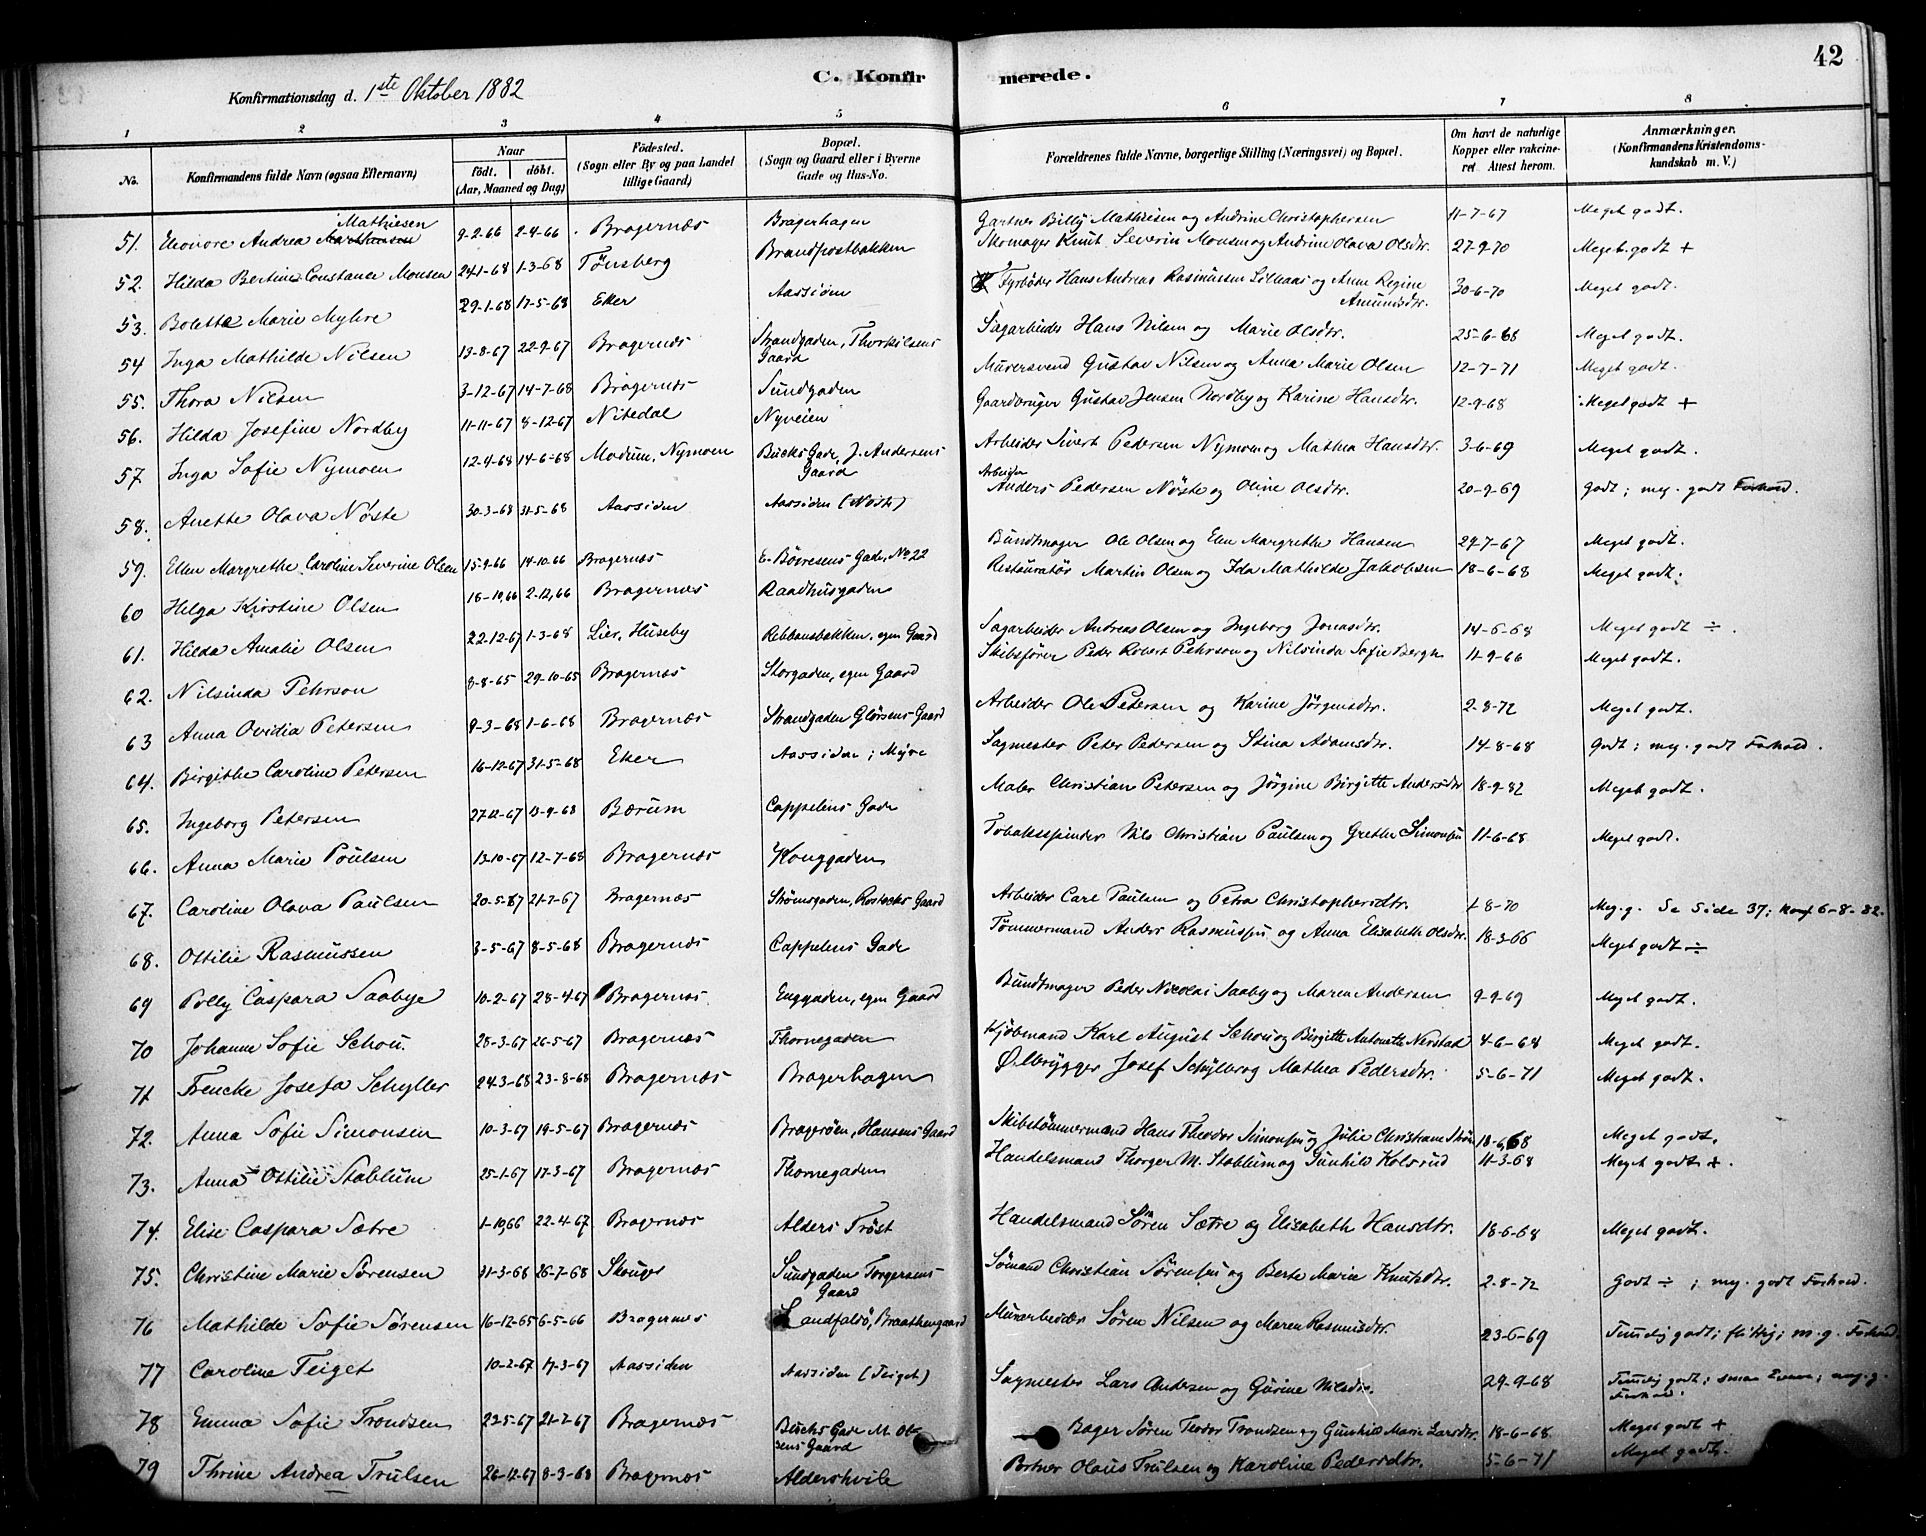 42
C. Konfirmerede.
Konfirmationsdag d. 1ste Oktober 1882
1 2 3 4 5 6 7 8
No. Konfirmandens fulde Navn (ogsaa Efternavn) Naar født. døbt. (Aar, Maaned og Dag) Födested. (Sogn eller By og paa Landet tillige Gaard) Bopæl. (Sogn og Gaard eller i Byerne Gade og Hus-No. Forældrenes fulde Navne, borgerlige Stilling (Næringsvei) og Bopæl. Om havt de naturlige Kopper eller vakcineret. Attest herom. Anmærkninger. (Konfirmandens Kristendomskundskab m. V.)
51. Eleonore Andrea Mathiesen 9-2-66 2-4-66 Bragernæs Bragerhagen Gartner Billy Mathiesen og Andrine Christophersen 11-7-67 Meget godt.
52. Hilda Bertine Constance Monsen 24-1-68 1-3-68 Tønsberg Brandpostbakken Skomager Knut Severin Monsen og Andrine Olava Olsdtr. 27-9-70 Meget godt +
53. Bolette Marie Myhre 29-1-68 17-5-68 Eker Aassiden Fyrbøder Hans Andreas Rasmussen og Anne Regine Amundsdtr. 30-6-70 Meget godt.
54 Inga Mathilde Nilsen 13-8-67 22-9-67 Bragernæs Strandgaden, Thorkilsens Gaard Sagarbeider Hans Nilsen og Marie Olsdtr. 25-6-68 Meget godt.
55. Thora Nilsen 3-12-67 14-7-68 Bragernæs Sundgaden Muresvend Gustav Nilsen og Anna Marie Olsen 12-7-71 Meget godt.
56. Hilda Josefine Nordby 11-11-67 8-12-67 Nitedal Nyveien Gaardbruger Gustav Jensen Nordby og Karine Hansdtr. 12-9-68 Meget godt +
57 Inga Sofie Nymoen 12-4-68 14-6-68 Modum, Nymoen Bucks Gade, J. Andersens Gaard Arbeider Sivert Pedersen Nymoen og Mathea Hansdtr. 3-6-69 Meget godt.
58. Anette Olava Nøste 30-3-68 31-5-68 Aassiden Aassiden (Nøste) Arbeider Anders Pedersen Nøste og Oline Olsdtr. 20-9-69 Godt; meg. godt Forhold.
59. Ellen Margrethe Caroline Severine Olsen 15-9-66 14-10-66 Bragernæs E. Børresens Gade, No 22 Bundtmager Ole Olsen og Elen Margrethe Hansen 29-7-67 Meget godt.
60 Helga Kirstine Olsen 18-10,66 2-12,66 Bragernæs Raadhusgaden Restauratør Martin Olsen og Ida Mathilde Jakobsen 18-6-68 Meget godt.
61. Hilda Amalie Olsen 22-12-67 1-3-68 Lier, Huseby Rebbansbakken, egen Gaard Sagarbeider Andreas Olsen og Ingeborg Jonasdtr. 14-6-68 Meget godt ÷.
62. Nilsinda Pehrson 8-8-65 29-10-65 Bragernæs Storgaden, egen Gaard Skibsfører Peder Robert Pehrson og Nilsinda Sofie Bergh 11-9-66 Meget godt.
63 Anna Ovidia Petersen 9-3-68 1-6-68 Bragernæs Strandgaden Glørsens Gaard Arbeider Ole Petersen og Karine Jørgensdtr. 2-8-72 Meget godt.
64. Birgithe Caroline Petersen 16-12-67 31-5-68 Eker Aassiden; Myre Sagmester Peter Pedersen og Stina Adamsdtr. 14-8-68 Godt; meg. godt Forhold.
65. Ingeborg Petersen 27-12-67 13-9-68 Bærum Cappelens Gade Maler Christian Petersen og Jørgine Birgitte Andersdtr 18-9-82 Meget godt.
66. Anna Marie Poulsen 13-10-67 12-7-68 Bragernæs Konggaden Tobaksspinder Nils Christian Paulsen og Grethe Simonsen 11-6-68 Meget godt.
67. Caroline Olava Paulsen 20-5-67 21-7-67 Bragernæs Strømsgaden, Gaard Arbeider Carl Paulsen og Petra Christophersdtr. 1-8-70 Meg. g. Se Side 37; Konf 6-8-82.
68. Ottilie Rasmussen 3-5-67 8-5-68 Bragernæs Cappelens Gade Tømmermand Anders Rasmussen og Anna Elisabeth Olsdtr. 18-3-66 Meget godt ÷
69 Polly Caspara Saabye 10-2-67 28-4-67 Bragernæs. Enggaden, egen Gaard Bundtmager Peder Nicolai Saaby og Maren Andersen 9-9-69 Meget godt.
70 Johanne Sofie Schou. 28-3-67 26-5-67 Bragernæs Thornegaden Kjøbmand Karl August Schou og Birgitte Antonette Nerstad 4-6-68 Meget godt.
71 Frencke Josefa Schyller 24-3-68 23-8-68 Bragernæs Bragerhagen Ølbrygger Josef Schyller og Mathea Pedersdtr. 5-6-71 Meget godt.
72. Anna Sofie Simonsen 10-3-67 19-5-67 Bragernæs Bragerøen, Hansens Gaard Skibstømmermand Hans Theodor Simonsen og Julie Christiane 18-6,68 Meget godt.
73. Anna Ottilie Stablum 25-1-67 17-3-67 Bragernæs Thornegaden Handelsmand Thorger M. Stablum og Gunhild Kolsrud 11-3-68 Meget godt +.
74. Elise Caspara Sætre 1-10,66 22-4-67 Bragernæs Alders Trøst Handelsmand Søren Sætre og Elisabeth Hansdtr. 18-6-68 Meget godt.
75. Christine Marie Sørensen 31-3-68 26-7-68 Skouger Sundgaden Torgersens Gaard Sømand Christian Sørensen og Berte Marie Knutsdtr. 2-8-72 Godt ÷; meg. godt Forhold.
76 Mathilde Sofie Sørensen 16-12-65 6-5-66 Bragernæs Landfaldø, Braathengaard Murarbeider Søren Nilsen og Maren Rasmusdtr. 23-6-69 Temmelig godt; flittig; m. g. Forhold.
77 Caroline Teiget 10-2-67 17-3-67 Aassiden Aassiden (Teiget) Sagmester Lars Andersen og Gurine Nilsdtr. 29-9-68 Temmelig godt; smaa Evner; meg. g. Forhold.
78 Emma Sofie Trondsen 22-5-67 21-7-67 Bragernæs Bucks Gade M. Olsens Gaard Bager Søren Teodor Trondsen og Gunhild Marie Larsdtr. 18-6-68 Meget godt +
79 Thrine Andrea Trulsen 26-12-67 8-3-68 Bragernæs Aldershvile Portner Olaus Trulsen og Karoline Pedersdtr. 5-6-71 Meget godt.